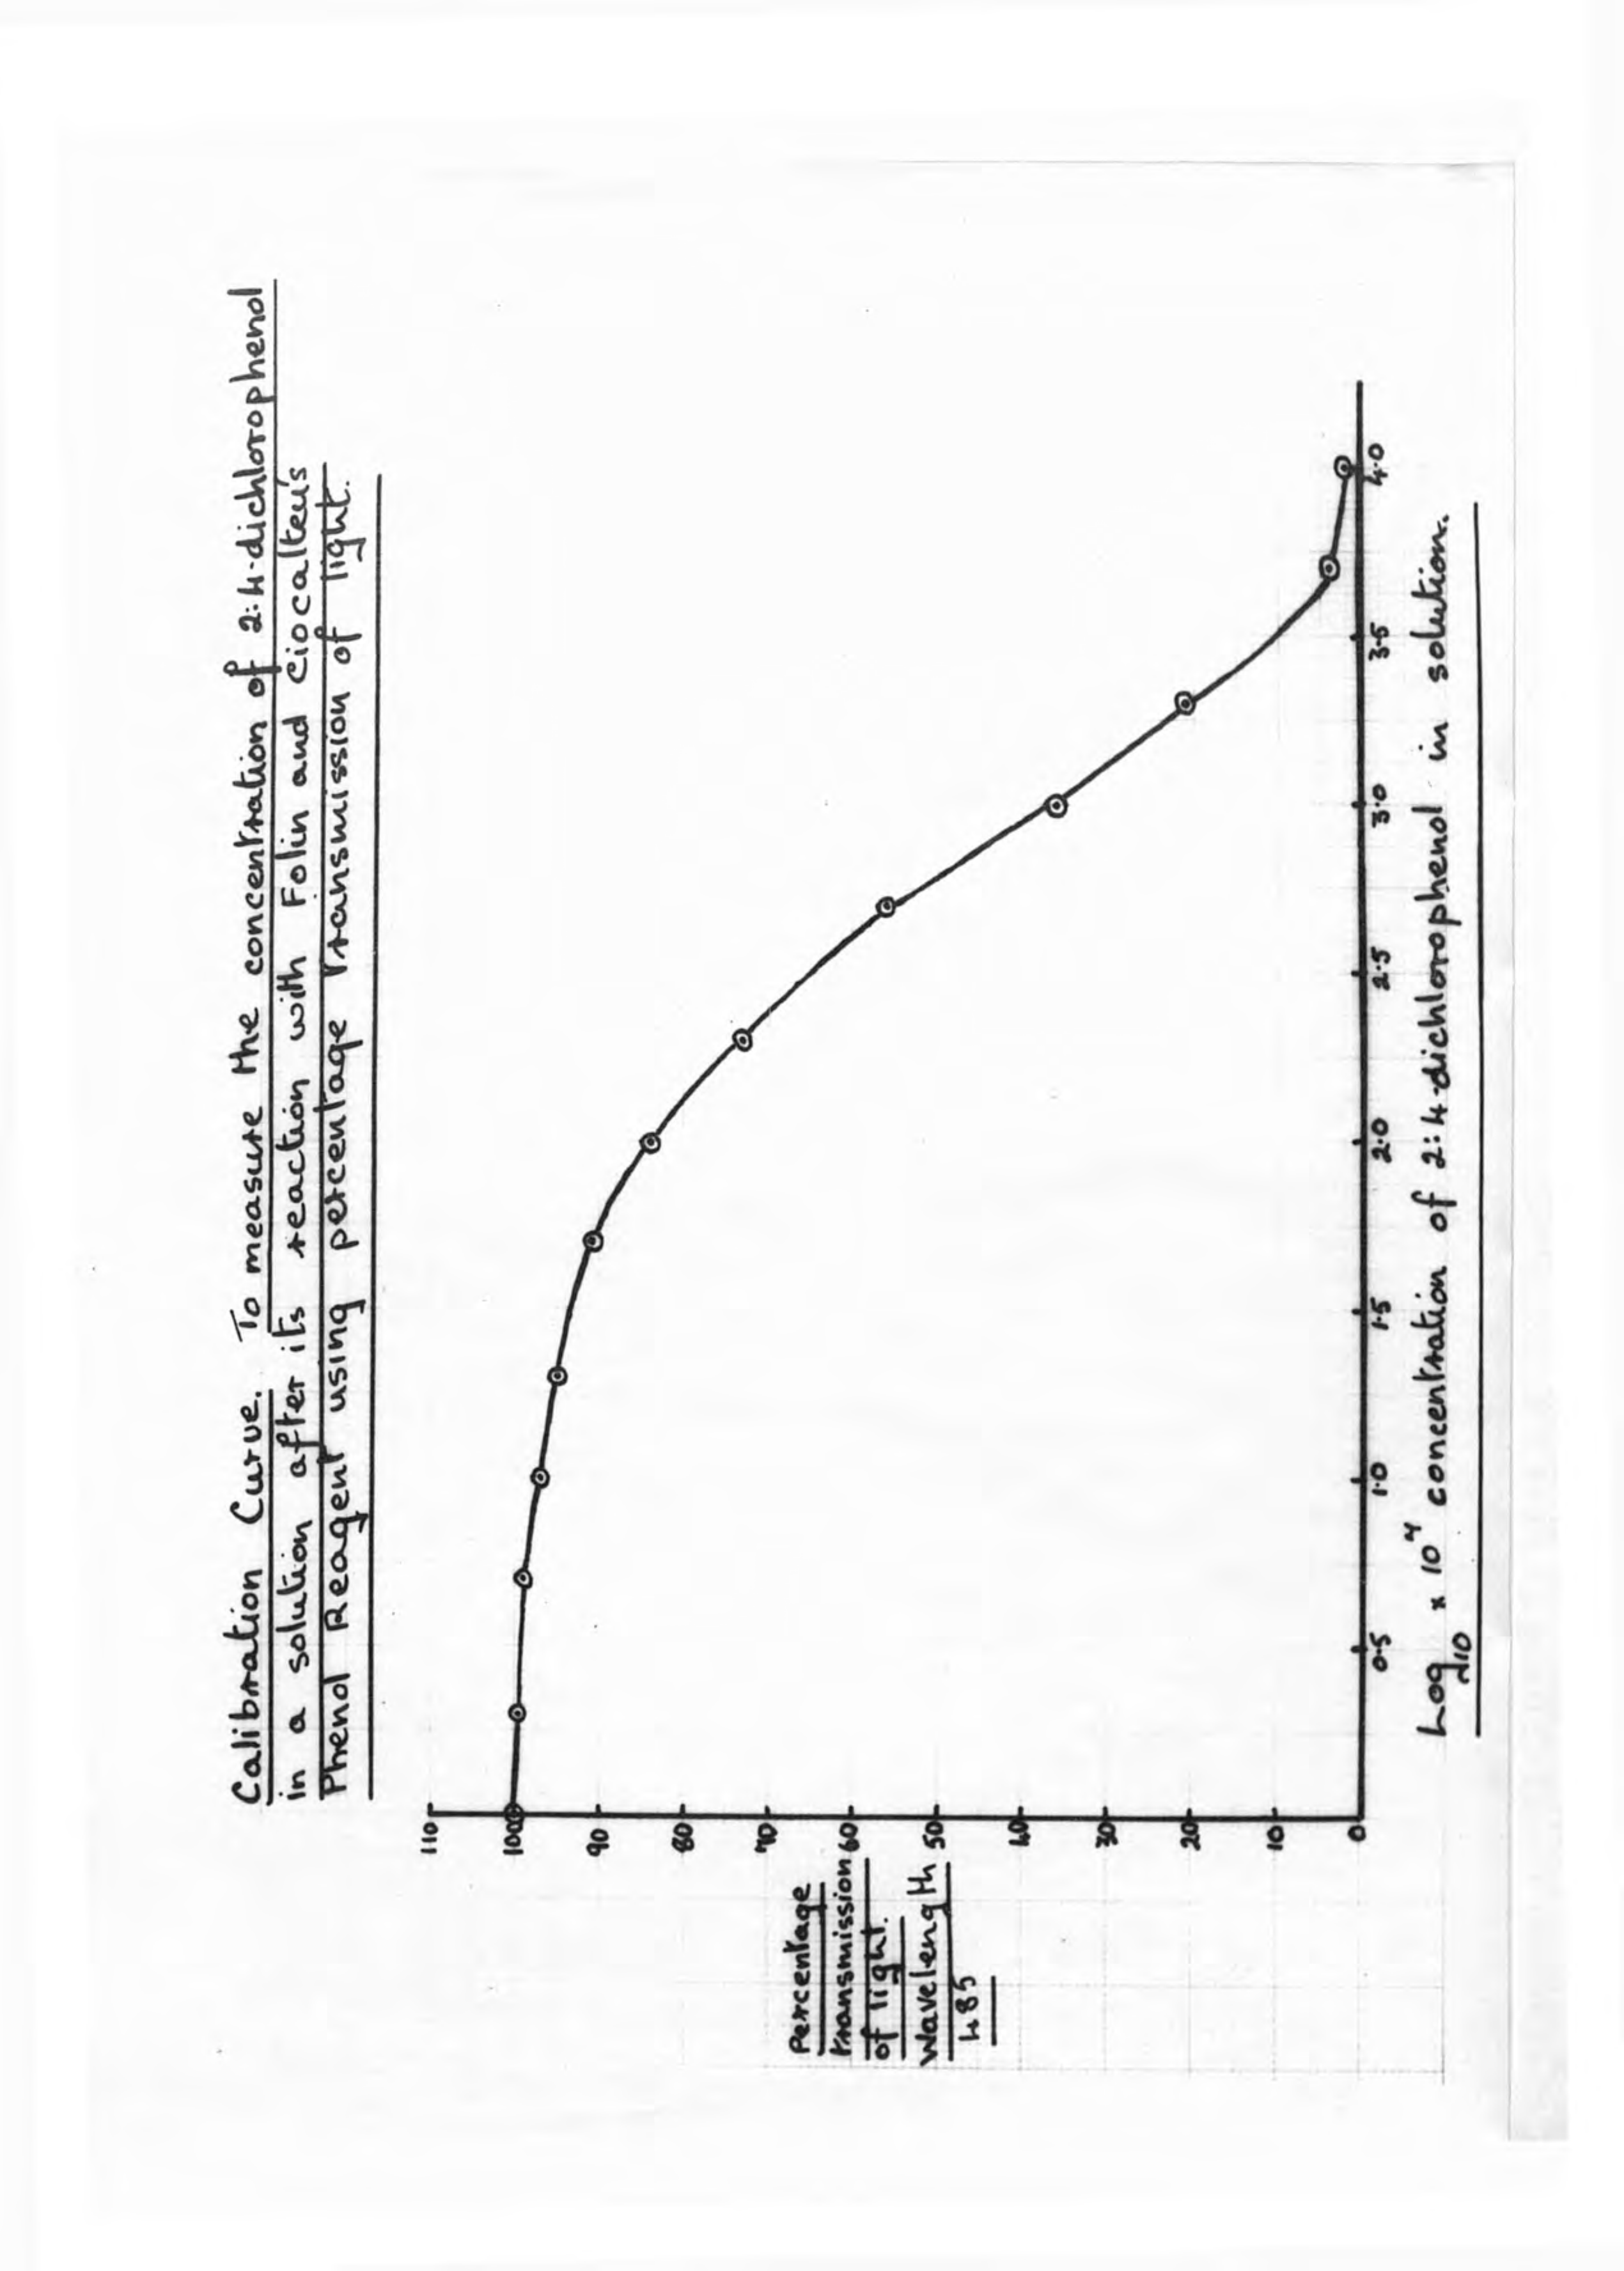 Calibration Curve. To measure the concentration of 2:4-dichlorophenol
in a solution after its reaction with Folin and Ciocalteu's
Phenol Reagent using percentage transmission of light.
110
100
90
80
70
60
50
40
30
20
10
0
Percentage
transmission
of light.
Wavelength
485
0.5
1.0
1.5
2.0
2.5
3.0
3.5
4.0
Log10 x 10⁴ concentration of 2:4-dichlorophenol in solution.